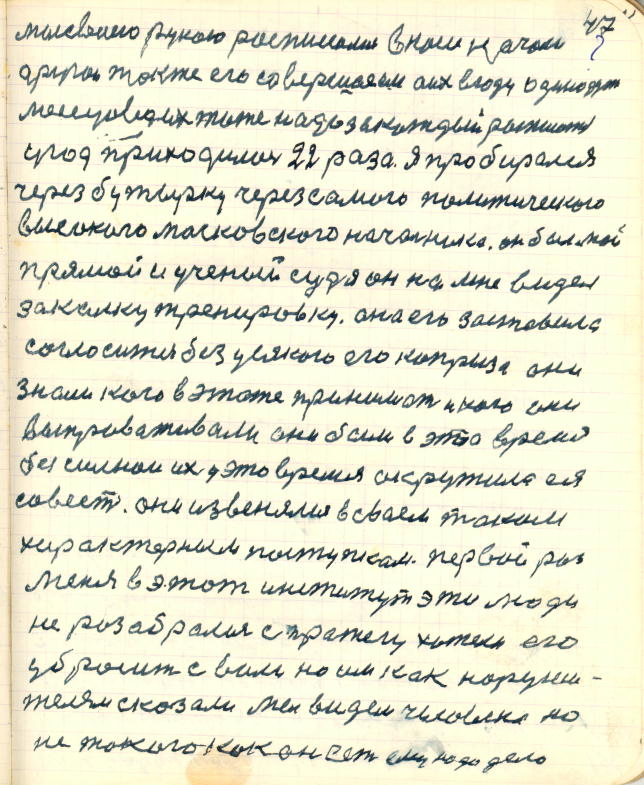 47
мы своею рукою росписалы в ноги началы
другой тожже его совершаем аих вгоду одинодцат
тоже надо закождый
угод приходилося 22 раза. Я пробирался
через бутырку через самого политического
высокого московского начальника. он был мой
прямой и ученый судя он на мне видел
закалку тренировку. она его заставила
согласится без усякого его коприза они
знали кого в этоже принимат и кого они
выпроваживали они были в это время
бессилнои их у это время окружила ея
совест. они извенялис в своем таком
характерным поступкам. первой роз
меня в этот институт эти люди
не розобралися хотели его
убросит с вили но им как наруши-
телям сказали мы видели человека но
не такого как он ест ему надо дело